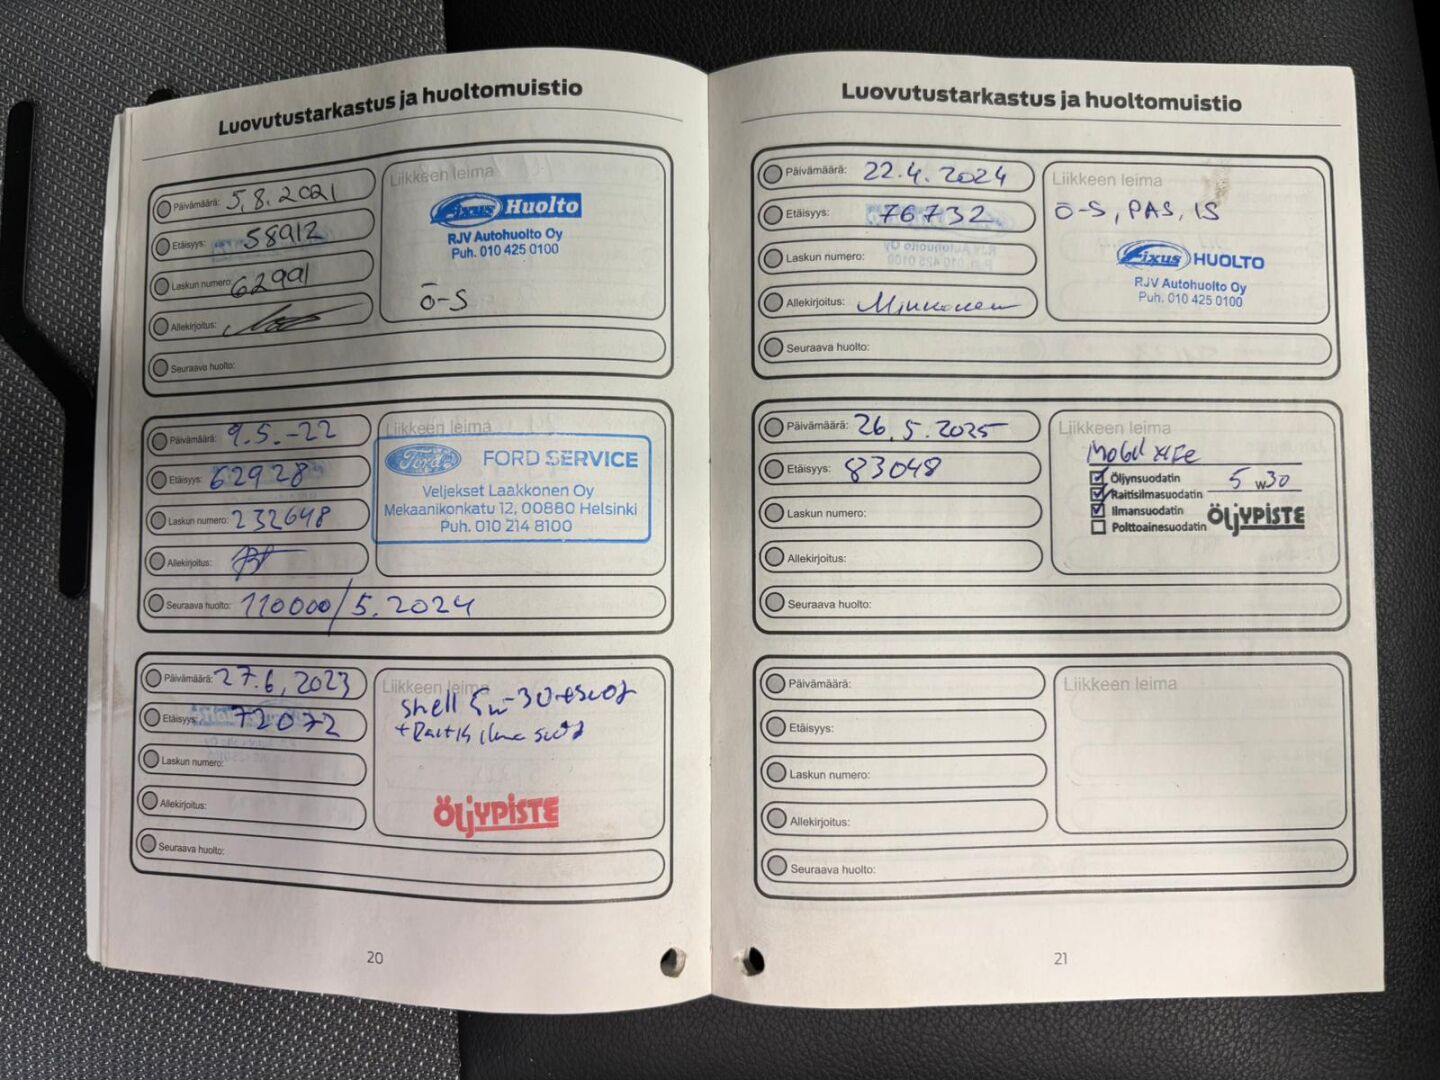 Luovutustarkastus ja huoltomuistio
Päivämäärä: 5.8.2021
Etäisyys: 58912
Laskun numero: 62991
Allekirjoitus:
Seuraava huolto:
Liikkeen leima
Fixus Huolto
RJV Autohuolto Oy
Puh. 010 425 0100
Ö-S
Päivämäärä: 9.5.-22
Etäisyys: 62928
Laskun numero: 232648
Allekirjoitus:
Seuraava huolto: 110000/5.2024
Liikkeen leima
Ford FORD SERVICE
Veljekset Laakkonen Oy
Mekaanikonkatu 12, 00880 Helsinki
Puh. 010 214 8100
Päivämäärä: 27.6.2023
Etäisyys: 72072
Laskun numero:
Allekirjoitus:
Seuraava huolto:
Liikkeen leima
Shell 5w-30
ÖljYPiSTE
20
Luovutustarkastus ja huoltomuistio
Päivämäärä: 22.4.2024
Etäisyys: 76732
Laskun numero:
Allekirjoitus:
Seuraava huolto:
Liikkeen leima
Ö-S, PAS, IS
Fixus HUOLTO
RJV Autohuolto Oy
Puh. 010 425 0100
Päivämäärä: 26.5.2025
Etäisyys: 83048
Laskun numero:
Allekirjoitus:
Seuraava huolto:
Liikkeen leima
Öljynsuodatin 5 W30
Raitisilmasuodatin
Ilmansuodatin
Polttoainesuodatin
ÖljYPiSTE
Päivämäärä:
Etäisyys:
Laskun numero:
Allekirjoitus:
Seuraava huolto:
Liikkeen leima
21